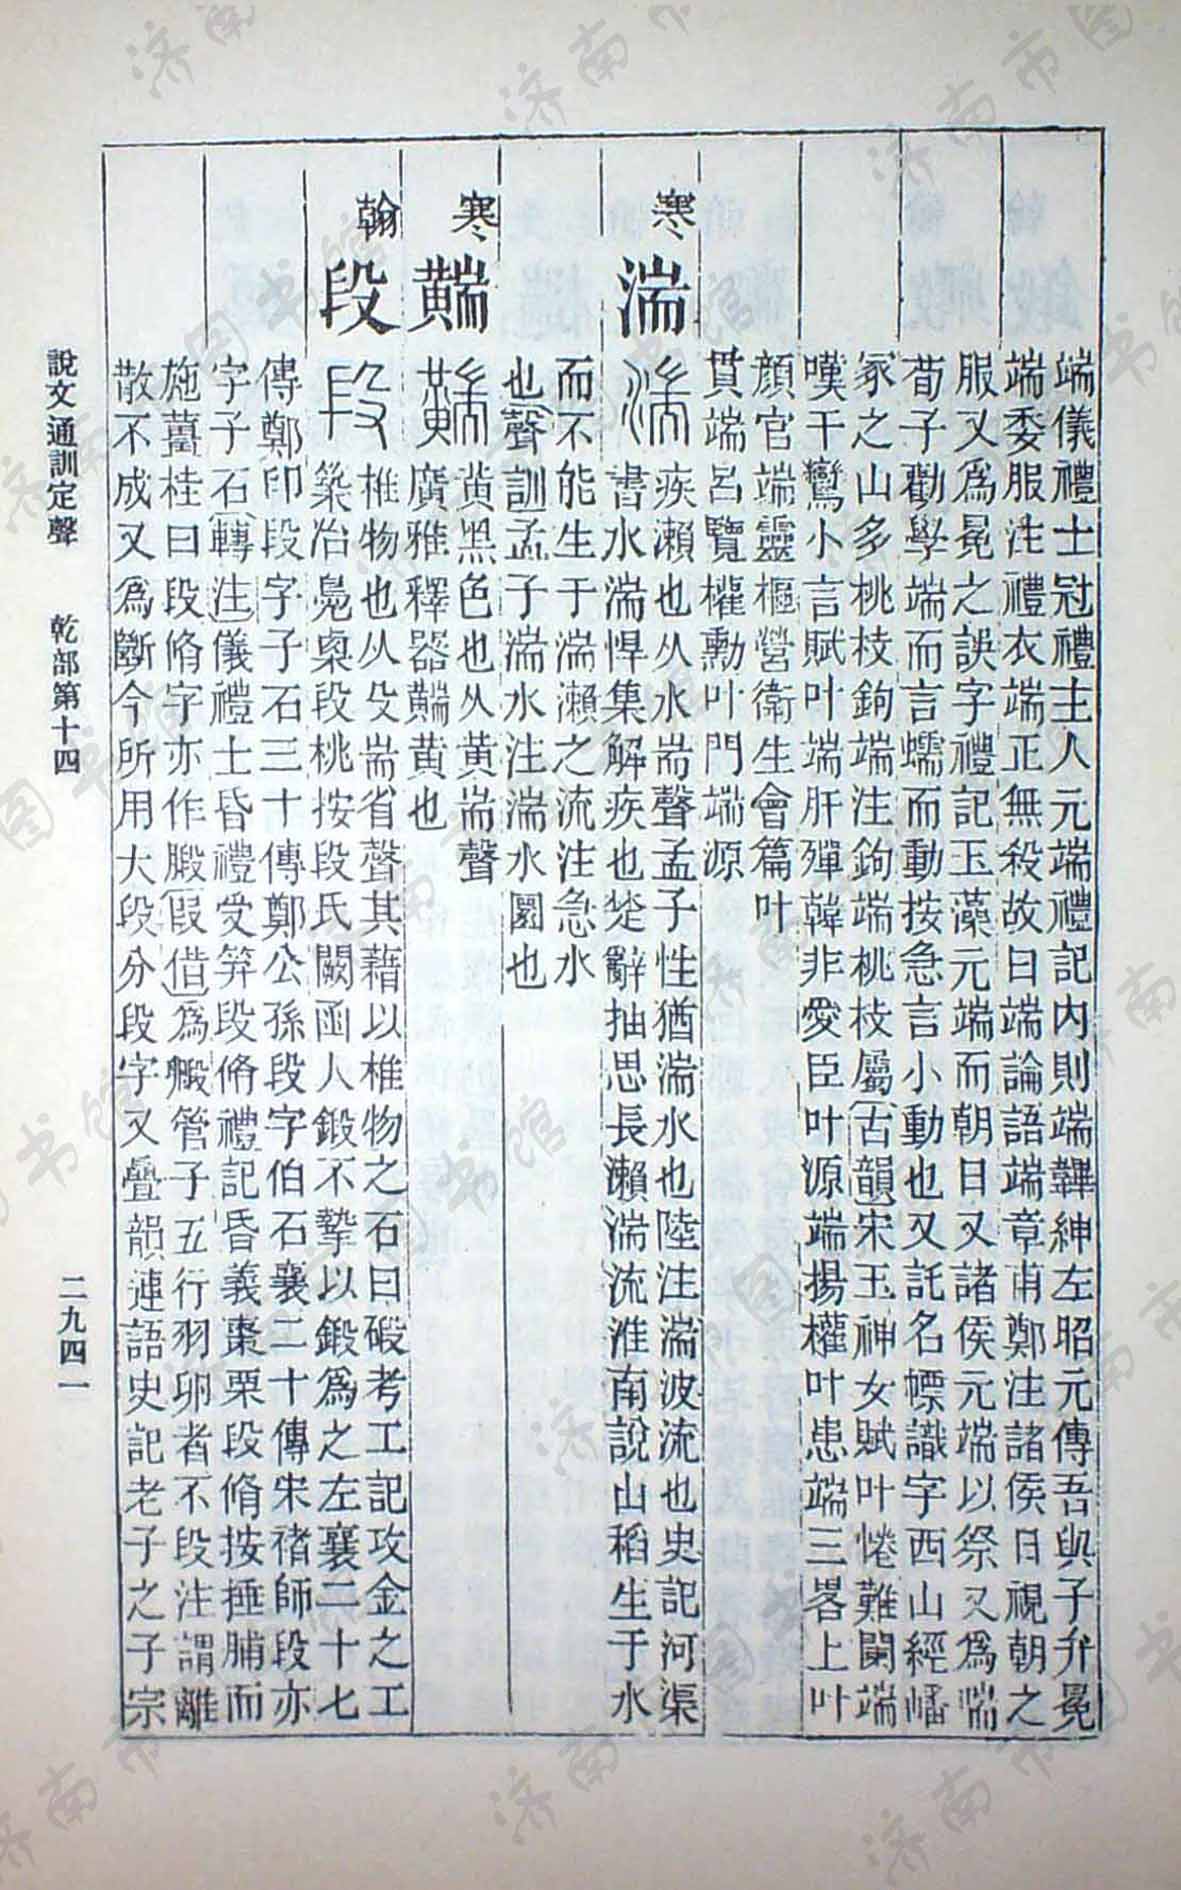 端儀禮士冠禮主人元端禮記内則端韠紳左昭元傳吾與子弁冕
端委服注禮衣端正無殺故曰端論語端章甫鄭注諸侯日視朝之
服又爲冕之誤字禮記玉藻元端而朝日又諸侯元端以祭又爲喘
荀子勸學端而言蠕而動按急言小動也又託名幖識字西山經嶓
冢之山多桃枝鉤端注鉤端桃枝屬古韻宋玉神女賦叶惓難闌端
嘆干鸞小言賦叶端肝殫韓非愛臣叶源端揚權叶患端三畧上叶
顔官端靈樞營衞生會篇叶
貫端呂覽權勳叶門端源
寒
湍
疾瀨也从水耑聲孟子性猶湍水也陸注湍波流也史記河渠
書水湍悍集解疾也楚辭抽思長瀨湍流淮南說山稻生于水
而不能生于湍瀨之流注急水
也聲訓孟子湍水注湍水圜也
寒
黇
黄黑色也从黄耑聲
廣雅釋器黄也
翰
段
椎物也从殳耑省聲其藉以椎物之石曰碫考工記攻金之工
築冶鳧㮚段桃按段氏闕函人鍛不摯以鍛爲之左襄二十七
傳鄭印段字子石三十傳鄭公孫段字伯石襄二十傳宋褚師段亦
字子石轉注儀禮士昏禮受笲段脩禮記昏義棗栗段脩按捶脯而
施薑桂曰段脩字亦作腶叚借爲毈管子五行羽卵者不段注謂離
散不成又爲斷今所用大段分段字又疊韻連語史記老子之子宗
說文通訓定聲 乾部第十四 二九四一
济南市图书馆